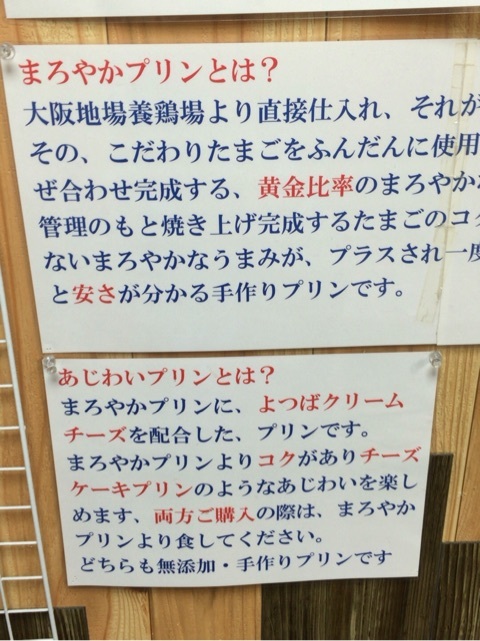 まろやかプリンとは?
大阪地場養鶏場より直接仕入れ、それが
その、こだわりたまごをふんだんに使用
ぜ合わせ完成する、黄金比率のまろやか
管理のもと焼き上げ完成するたまごのコク
ないまろやかなうまみが、プラスされ一度
と安さが分かる手作りプリンです。
あじわいプリンとは?
まろやかプリンに、よつばクリーム
チーズを配合した、プリンです。
まろやかプリンよりコクがありチーズ
ケーキプリンのようなあじわいを楽し
めます、両方ご購入の際は、まろやか
プリンより食してください。
どちらも無添加・手作りプリンです